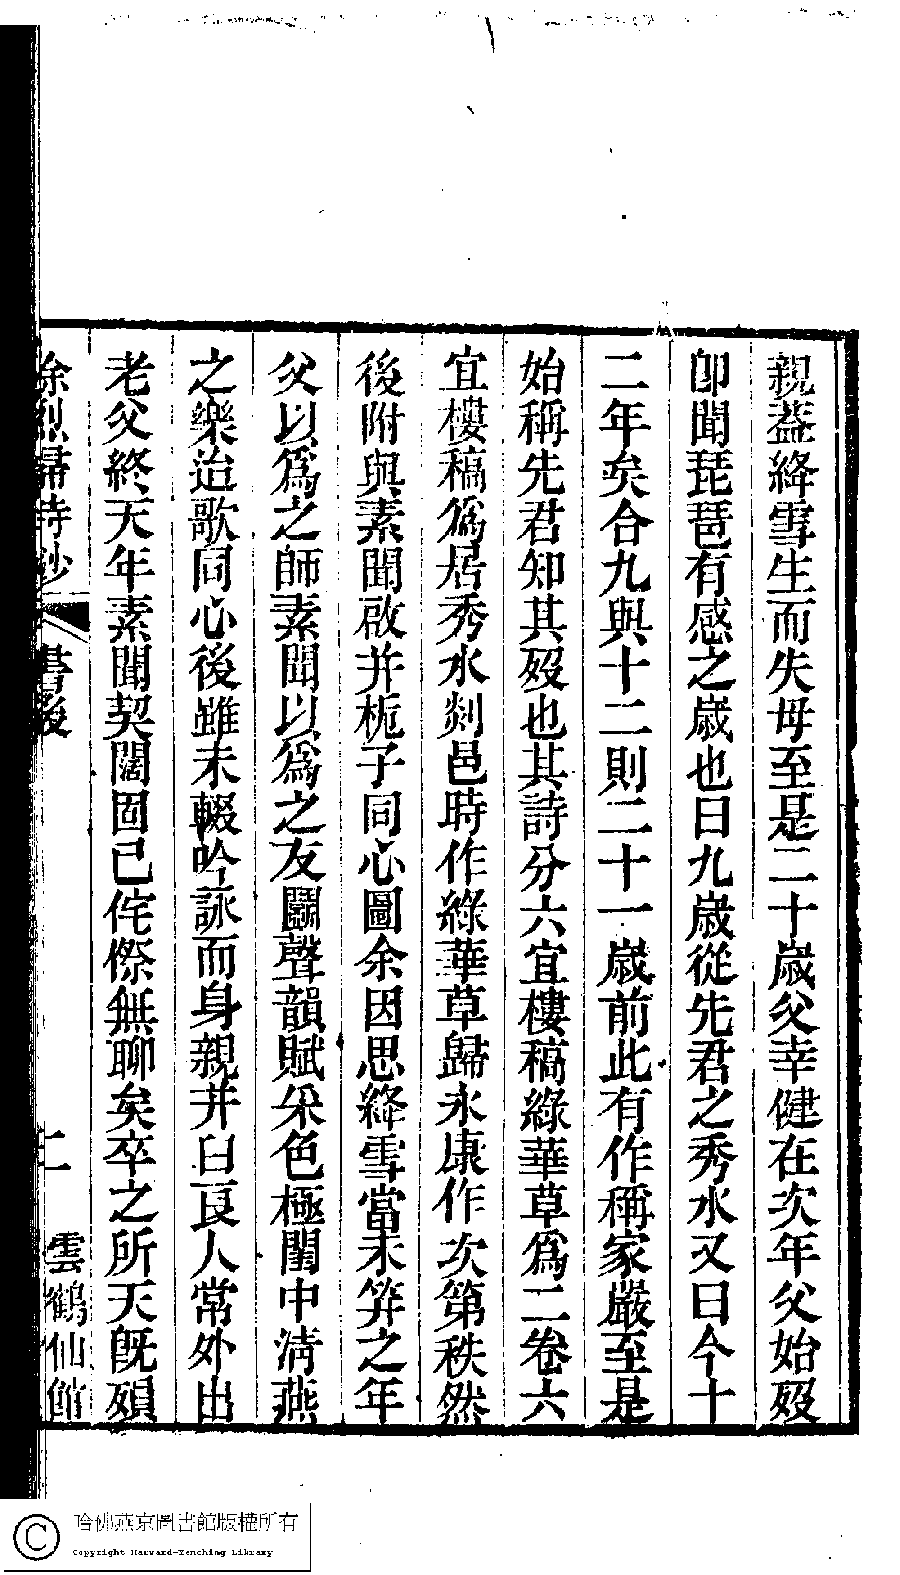 親葢絳雪生而失母至是二十歲父幸健在次年父始歿
卽聞琵琶有感之歲也曰九歲從先君之秀水又曰今十
二年矣合九與十二則二十一歲前此有作稱家嚴至是
始稱先君知其歿也其詩分六宜樓稿綠華草爲二卷六
宜樓稿爲居秀水剡邑時作綠華草歸永康作次第秩然
後附與素聞啟并梔子同心圖余因思絳雪當未笄之年
父以爲之師素聞以爲之友鬭聲韻賦采色極閨中淸燕
之樂迨歌同心後雖未輟吟詠而身親井臼良人常外出
老父終天年素聞契闊固已侘傺無聊矣卒之所天旣殞
徐烈婦詩鈔 書後 二 雲鶴仙館
哈佛燕京圖書館版權所有
Copyright Harvard-Yenching Library